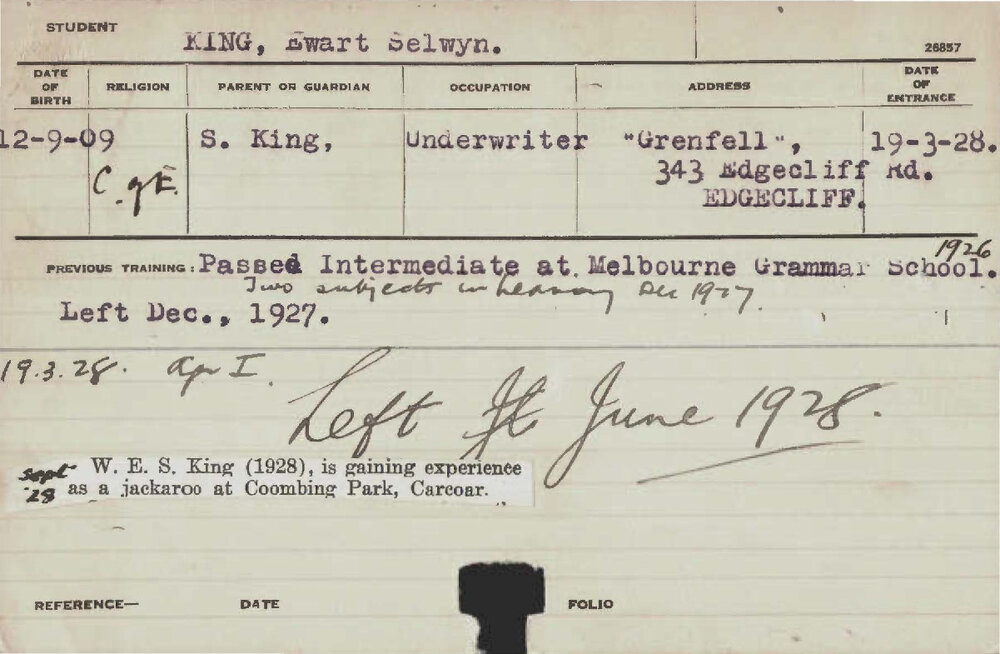 STUDENT
KING, Ewart Selwyn.
26857
DATE OF BIRTH
RELIGION
PARENT OR GUARDIAN
OCCUPATION
ADDRESS
DATE OF ENTRANCE
12-9-09
C of E.
S. King,
Underwriter
"Grenfell",
343 Edgecliff Rd.
EDGECLIFF.
19-3-28.
1926
PREVIOUS TRAINING: Passed Intermediate at Melbourne Grammar School.
Two subjects in Leaving Dec 1927.
Left Dec., 1927.
19.3.28. Ag I.
Left June 1928.
Sept '28
W. E. S. King (1928), is gaining experience
as a jackaroo at Coombing Park, Carcoar.
REFERENCE—
DATE
FOLIO